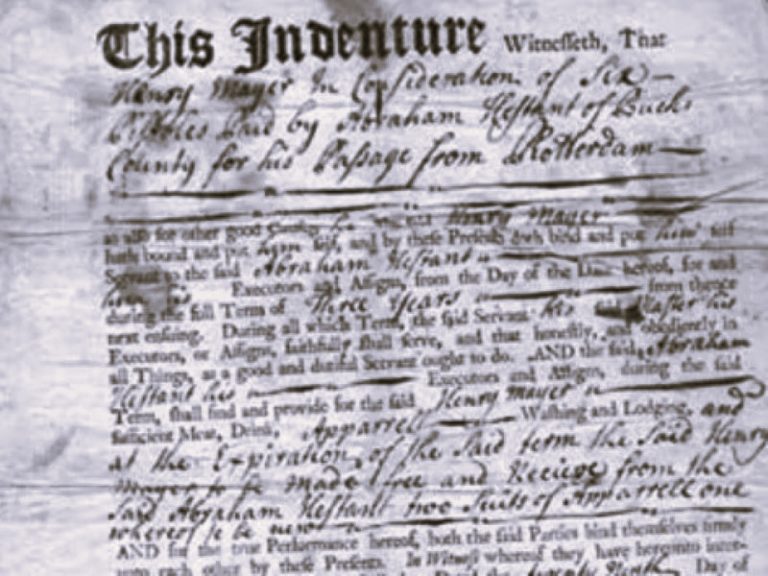 This Indenture Witnesseth, That
Henry Mayer In Consideration of Six
Pistoles Paid by Abraham Hestant of Bucks
County for his Passage from Rotterdam
as also for other good Causes Henry Mayer
hath bound and put him self, and by these Presents doth bind and put him self
Servant to the said Abraham Hestant
Executors and Assigns, from the Day of the Date hereof, for and
during the full Term of Three Years from thence
next ensuing. During all which Term, the said Servant his said Master his
Executors, or Assigns, faithfully shall serve, and that honestly, and obediently in
all Things, as a good and dutiful Servant ought to do. AND the said Abraham
Hestant his Executors and Assigns, during the said
Term, shall find and provide for the said Henry Mayer
sufficient Meat, Drink, Apparrell Washing and Lodging, and
at the Expiration of the Said term the Said Henry
Mayer to be made free and Recieve from the
Said Abraham Hestant two Suits of Apparrell one
whereof to be new
AND for the true Performance hereof, both the said Parties bind themselves firmly
unto each other by these Presents. In Witness whereof they have hereunto inter-
twenty Ninth Day of